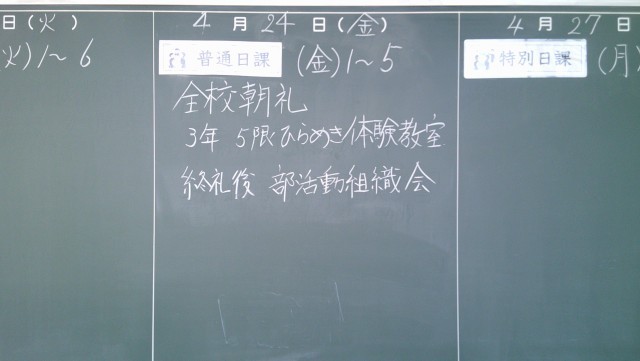 日(火)
火)1〜6
4月24日(金)
普通日課 (金)1〜5
全校朝礼
3年 5限 ひらめき体験教室
終礼後 部活動組織会
4月27日
特別日課 (月